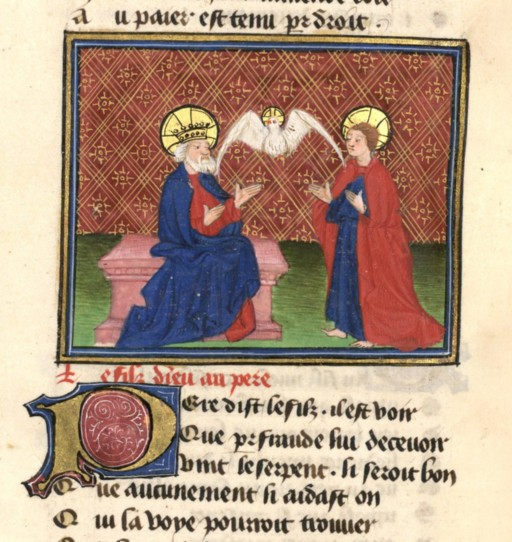 a u paier est tenu pr droit.
Le filz dieu au pere
Pere dist le filz. il est voir
Que pr fraude lui decevoir
Vint le serpent. si seroit bon
Que aucunement si aidast on
Qui la voye pourroit trouver